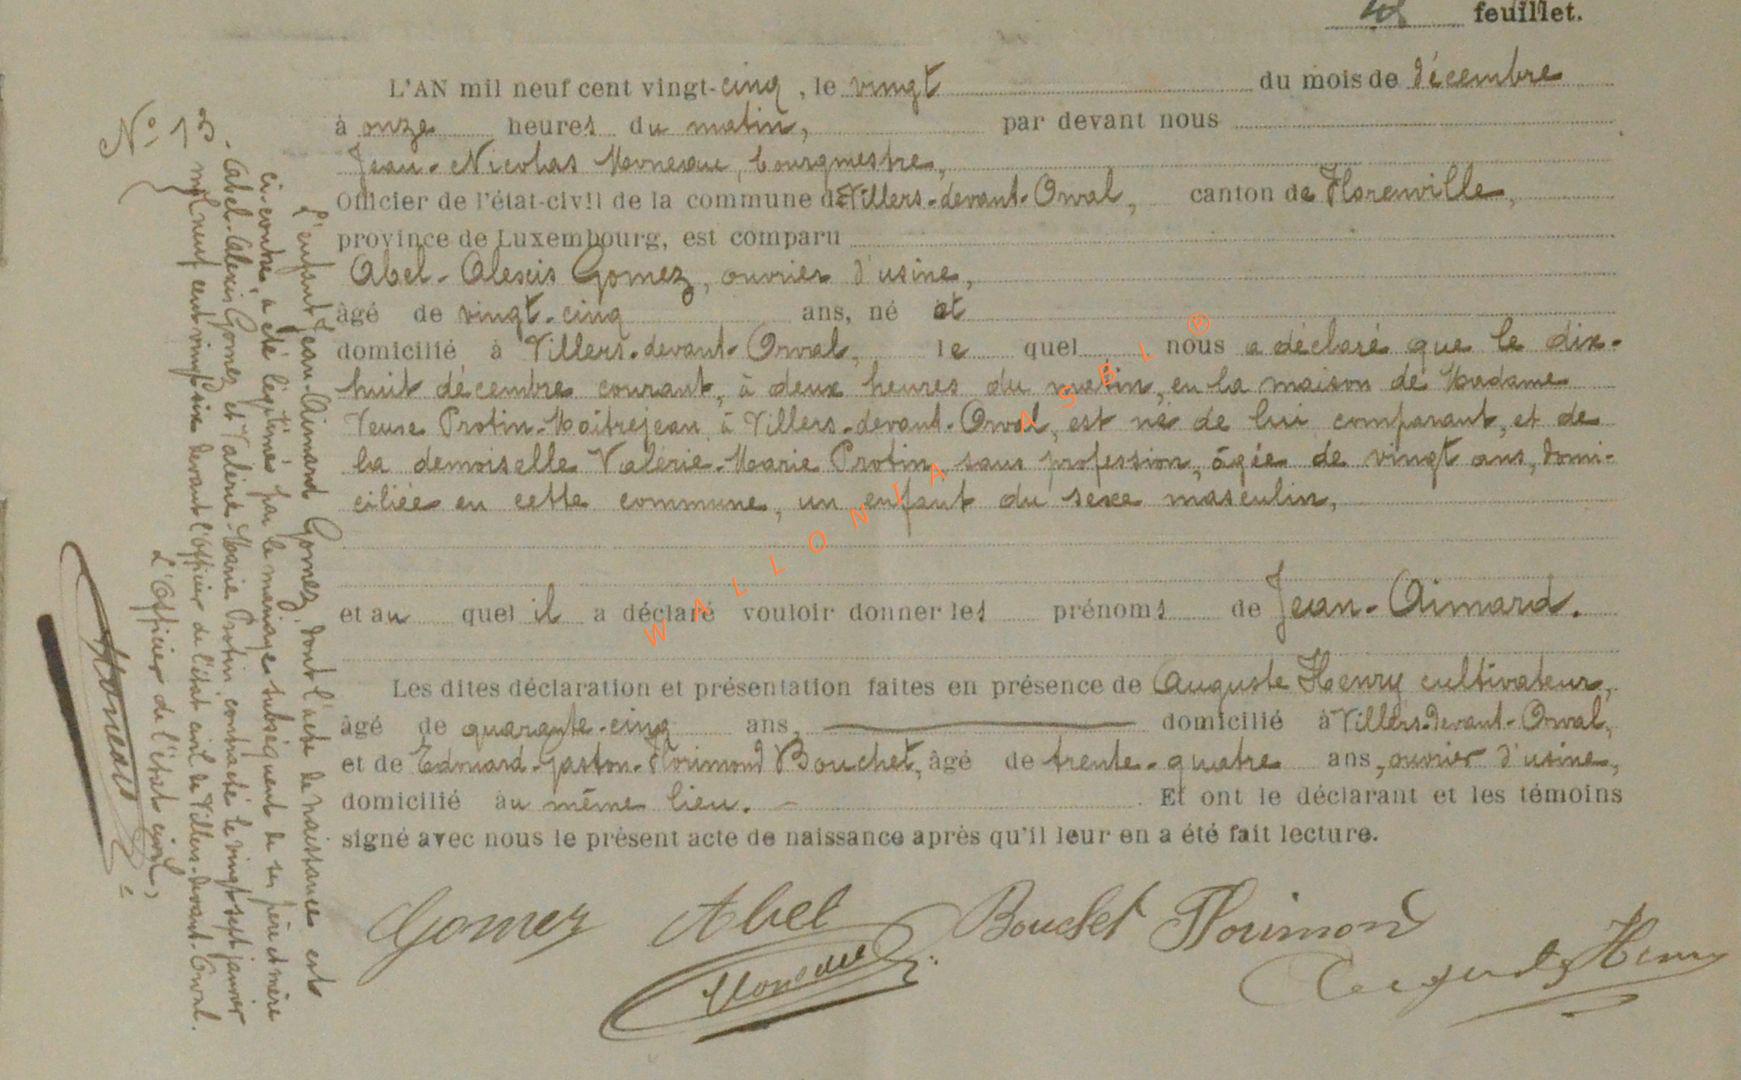 feuillet.
L'AN mil neuf cent vingt-cinq, le vingt du mois de décembre
à onze heures du matin, par devant nous
Jean-Nicolas bourgmestre,
Officier de l'état-civil de la commune de Villers-devant-Orval, canton de Florenville,
province de Luxembourg, est comparu
Abel-Alexis Gomez, ouvrier d'usine,
âgé de vingt-cinq ans, né et
domicilié à Villers-devant-Orval, le quel nous a déclaré que le dix-
huit décembre courant, à deux heures du matin, en la maison de Madame
Veuve Protin-Maitrejean, à Villers-devant-Orval, est né de lui comparant, et de
la demoiselle Valérie-Marie Protin, sans profession, âgée de vingt ans, domi-
ciliée en cette commune, un enfant du sexe masculin,
et au quel il a déclaré vouloir donner les prénoms de Jean-Aimard.
Les dites déclaration et présentation faites en présence de Auguste Henry cultivateur,
âgé de quarante-cinq ans, domicilié à Villers-devant-Orval,
et de Edouard-Gaston-Florimond Bouchet, âgé de trente-quatre ans, ouvrier d'usine,
domicilié au même lieu. - Et ont le déclarant et les témoins
signé avec nous le présent acte de naissance après qu'il leur en a été fait lecture.
Gomez Abel Bouchet Florimond
Auguste Henry
N° 13
L'enfant Jean-Aimard Gomez, dont l'acte de naissance est
ci-contre, a été légitimé par le mariage subséquent de ses père et mère
Abel-Alexis Gomez et Valérie-Marie Protin contracté le vingt-sept janvier
mil neuf cent vingt-six devant l'Officier de l'état civil de Villers-devant-Orval.
L'Officier de l'état civil,
WALLONIA ASBL ®